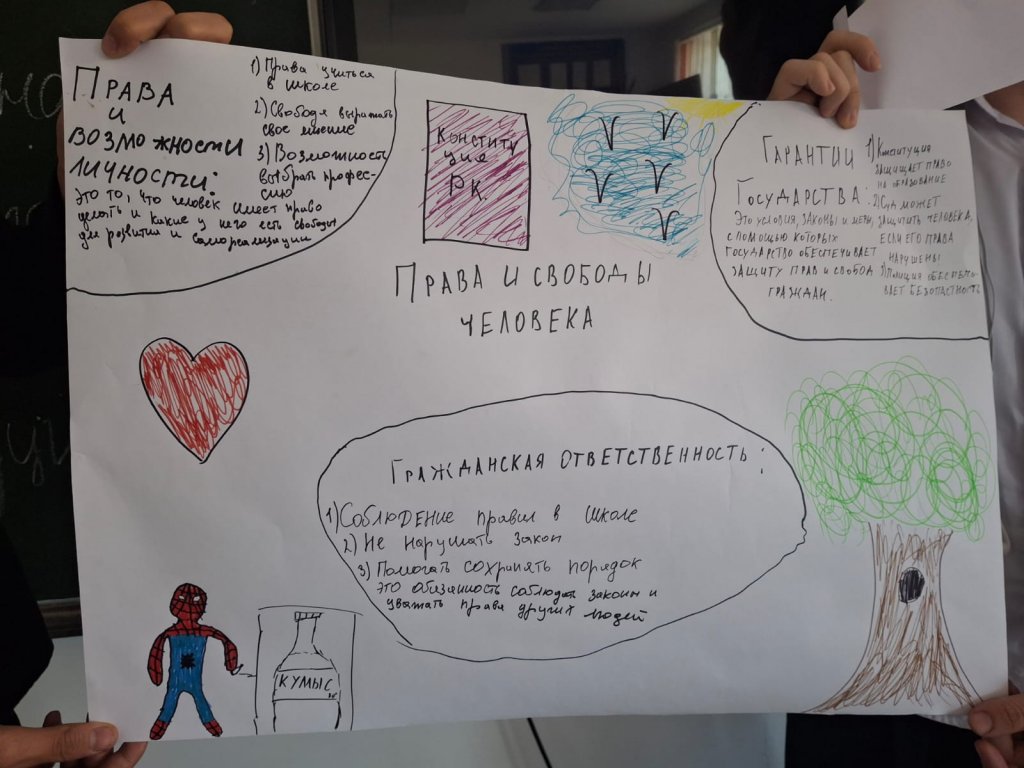 Права
и
возможности
личности:
Это то, что человек имеет право
делать и какие у него есть свободы
для развития и самореализации
1) Права учиться
в школе
2) Свобода выражать
свое мнение
3) Возможность
выбрать профес-
сию
Конститу
ция
РК
Права и свободы
человека
Гарантии
Государства:
Это условия, законы и меры,
с помощью которых
государство обеспечивает
защиту прав и свобод
граждан.
1) Конституция
защищает право
на образование
2) Суд может
защитить человека,
если его права
нарушены
3) Полиция обеспечи-
вает безопасность
Гражданская ответственность:
1) Соблюдение правил в школе
2) Не нарушать закон
3) Помогать сохранять порядок
это обязанность соблюдать законы и
уважать права других людей
КУМЫС